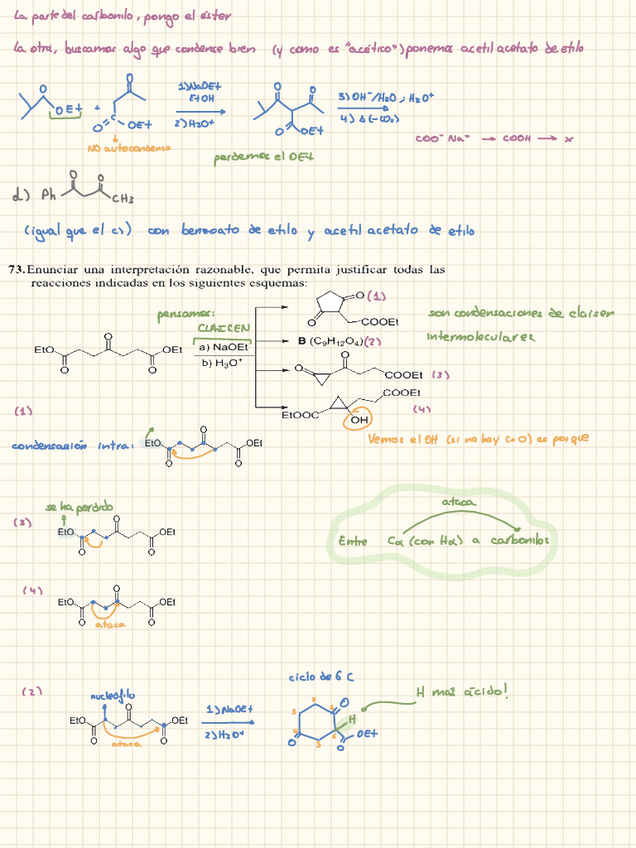 La parte del carbonilo, pongo el éster
La otra, buscamos algo que condense bien (y como es "acético") ponemos acetil acetato de etilo
O
OEt
+
O
O
OEt
1) NaOEt
EtOH
2) H₃O⁺
O
O
O
OEt
3) OH⁻/H₂O ; H₃O⁺
4) Δ (-CO₂)
NO autocondensa
perdemos el OEt
COO⁻Na⁺ → COOH → x
d) Ph
O
O
CH₃
(igual que el c)) con benzoato de etilo y acetil acetato de etilo
73. Enunciar una interpretación razonable, que permita justificar todas las
reacciones indicadas en los siguientes esquemas:
pensamos:
CLAICEN
EtO
O
O
O
OEt
a) NaOEt
b) H₃O⁺
O
O
COOEt
(1)
B (C₉H₁₂O₄) (2)
O
O
COOEt (3)
EtOOC
COOEt
OH
(4)
son condensaciones de claisen
intermoleculares
Vemos el OH (si no hay C=O) es porque
(1)
condensación intra:
EtO
O
O
O
OEt
se ha perdido
(3)
EtO
O
O
O
OEt
ataca
Entre Cα (con Hα) a carbonilos
(4)
EtO
O
O
O
OEt
ataca
(2)
nucleófilo
EtO
O
O
O
OEt
ataca
1) NaOEt
2) H₃O⁺
ciclo de 6 C
O
H
OEt
O
O
H más ácido!